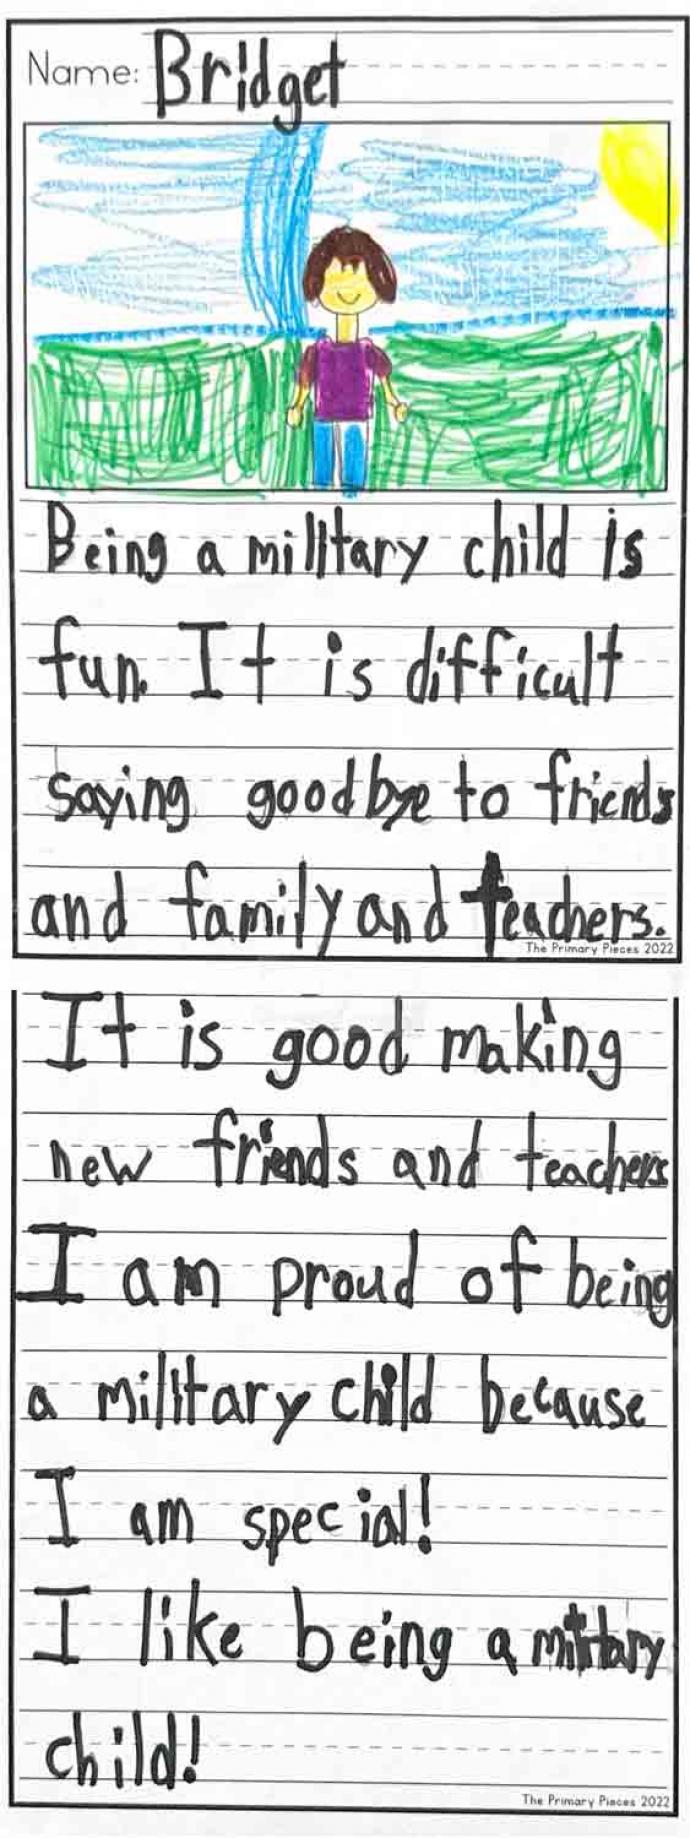 Name: Bridget
Being a military child is
fun. It is difficult
saying goodbye to friends
and family and teachers.
The Primary Pieces 2022
It is good making
new friends and teachers
I am proud of being
a military child because
I am special!
I like being a military
child!
The Primary Pieces 2022